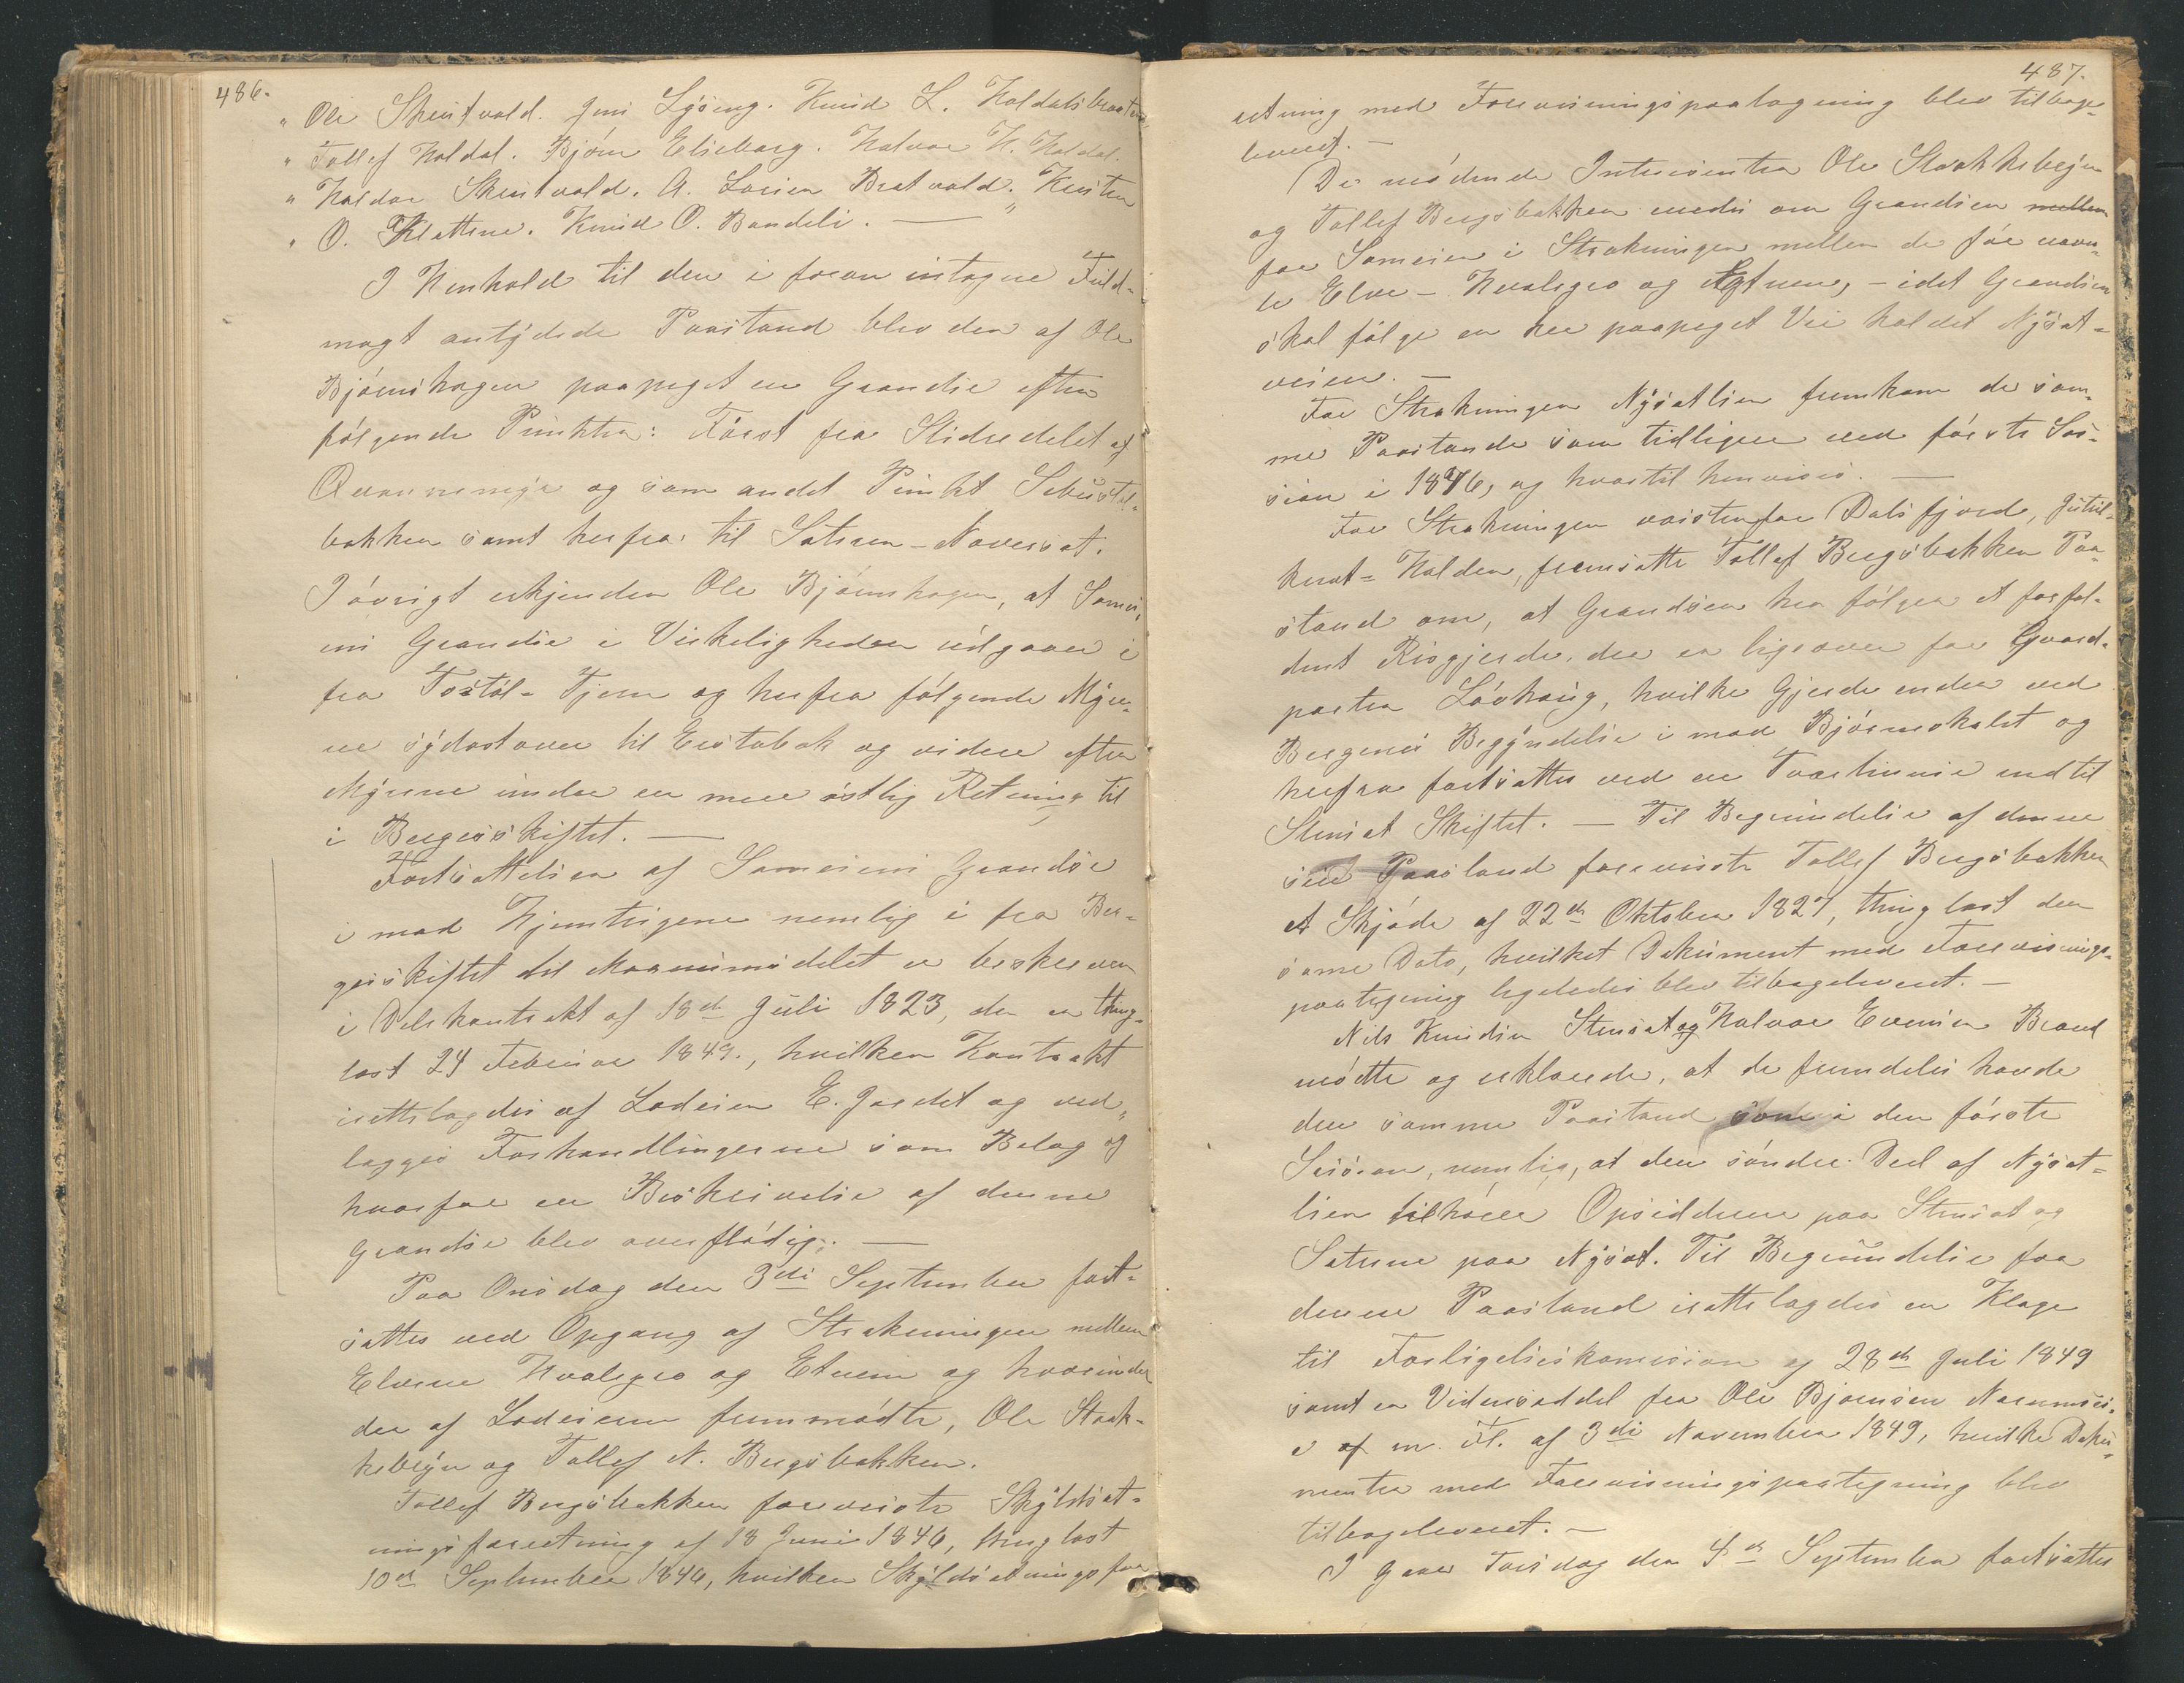 486.
" Ole Skeutvold. Jens Lysøng. Knud L. Holdalsbraaten,
" Tollef Holdal. Bjørn Elieborg. Halvor H. Holdal.
" Haldor Skeutvold. A. Larsen Bratvold. " Kristen
" O. Klattrne. Knud O. Bandeli. —
I Henhold til den i foran intagne Fuld-
magt antydede Paastand blev den af Ole
Bjørnshagen paapeget en Grændse efter
følgende Punkter: Først fra Slidredelet af
og som andet Punkt
bakken samt herfra til Sæteren - Naversæt.
I øvrigt erkjender Ole Bjørnshagen, at Samei,
ets Grændse i Virkeligheden udgaaer i
fra Tostøl- Tjern og herfra følgende Myre-
ne sydostover til Eistabek og videre efter
Myrene under en mere østlig Retning til
i Bergesskiftet. —
Fortsættelsen af Sameiets Grændse
i mod Hjemtrigene nemlig i fra Ber-
gesskiftet til Maanumsdelet er beskreven
i Delekontrakt af 18de Juli 1823, der er thing-
læst 24 Februar 1849., hvilken Kontrakt
irettelagdes af Lodeier E. Jordet og ved-
lægges Forhandlingerne som Belæg og
hvorfor en Beskrivelse af denne
Grændse blev overflødig. —
Paa Onsdag den 3die September fort-
sattes ved Opgang af Strækningen mellem
Elvene Hvalegro og Etnen og hvorunder
der af Lodeierne fremmødte, Ole Stræk-
kebøyn og Tollef N. Bergsbakken.
Tollef Bergsbakken foreviste Skyldsæt-
ningsforretning af 18 Juni 1846, thinglæst
10de September 1846, hvilken Skyldsætningsfor-
487.
retning med Forevisningspaategning blev tilbage-
leveret. —
De mødende Interesenter Ole Strækkebøyn
og Tollef Bergsbakken enedes om Grændsen mellem
for Sameien i Strækningen mellem de før nævn-
te Elve - Hvalegro og Etnen, - idet Grændsen
skal følge en her paapeget Vei kaldet Nysæt-
veien. —
For Strækningen Nysætlien fremkom de sam-
me Paastande som tidligere ved første Ses-
sion i 1876, og hvortil henvises. —
For Strækningen vestenfor Dalsfjord,
Halden, fremsatte Tollef Bergsbakken Paa-
stand om, at Grændsen her følger et forfal-
dent Risgjerde, der er ligeover for Gaard-
parten Løvhaug, hvilke Gjerde ender ved
Bergenes Begyndelse i mod Bjørneskalet og
herfra fortsættes ved en Tværlinnie indtil
Stensæt Skiftet. — Til Begrundelse af denne
sin Paastand foreviste Tollef Bergsbakken
et Skjøde af 22de Oktober 1827, thinglæst den
same Dato, hvilket Dokument med Forevisnings-
paategning ligeledes blev tilbageleveret. —
Nils Knudsen Stensæt og Halvor Evensen Brænd
mødte og erklærede, at de fremdeles havde
den samme Paastand som i den første
Session, nemlig, at den søndre Deel af Nysæt-
lien tilhører Opsidderne paa Stensæt og
Sæterne paa Nysæt. Til Begrundelse for
denne Paastand irettelagdes en Klage
til Forligelseskomission af 28de Juli 1849
samt en Vidnesseddel fra Ole Bjørnsen
m. Fl. af 3die November 1849, hvilke Doku-
menter med Forevisningspaategning blev
tilbageleveret. —
I gaar Torsdag den 4de September fortsattes